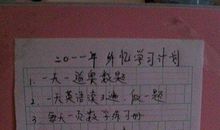 二〇一一年 外忆学习计划
1. 一天一道奥数题
2. 一天英语读3遍, 做一题
3. 每天一页数学练习册